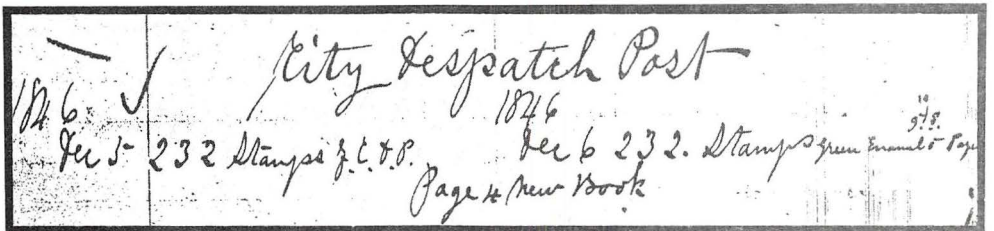 City Despatch Post
1846 1846
Dec 5 232 Stamps C. D. P. Dec 6 232. Stamps Green Enamel Page
Page 4 New Book